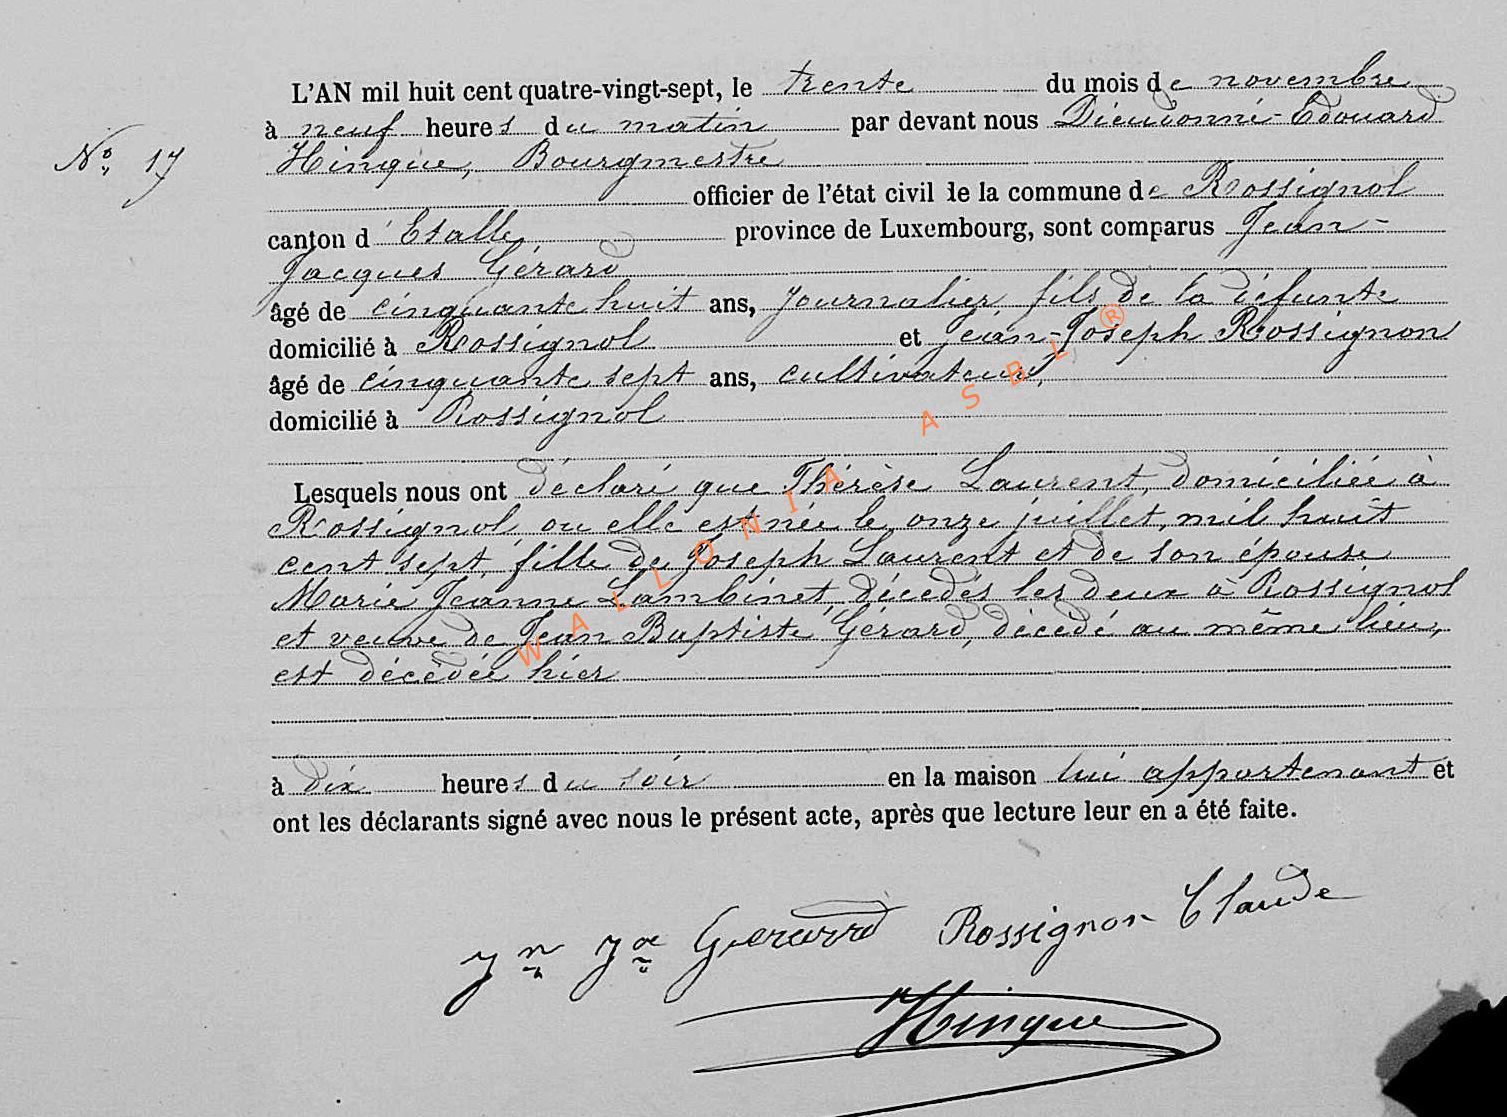 L'AN mil huit cent quatre-vingt-sept, le trente du mois de novembre
à neuf heures du matin par devant nous Dieudonné-Edouard
Nº 17
Hinque, Bourgmestre
officier de l'état civil de la commune de Rossignol
canton d'Etalle, province de Luxembourg, sont comparus Jean-
Jacques Gérard
âgé de cinquante huit ans, journalier, fils de la défunte
domicilié à Rossignol et Jean-Joseph Rossignon
âgé de cinquante sept ans, cultivateur,
domicilié à Rossignol
Lesquels nous ont déclaré que Thérèse Laurent, domiciliée à
Rossignol, ou elle est née le onze juillet, mil huit
cent sept, fille de Joseph Laurent et de son épouse
Marie Jeanne Lambinet, décédés les deux à Rossignol
et veuve de Jean Baptiste Gérard, décédé au même lieu,
est décédée hier
à dix heures du soir en la maison lui appartenant et
ont les déclarants signé avec nous le présent acte, après que lecture leur en a été faite.
Jn Jque Gerard Rossignon Claude
Hinque
WALLONIA ASBL ®